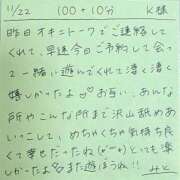 11/22　100+10分　K様
昨日オキニトークでご連絡して
くれて、早速今日ご予約して会っ
て一緒に遊んでくれて凄く凄く
嬉しかったよ♡お互い、あんな
所やこんな所まで沢山舐めあ
いっこして、めちゃくちゃ気持ち良
くて幸せだったね(*^^*)とっても楽
しかったよ また遊ぼうね!! みと